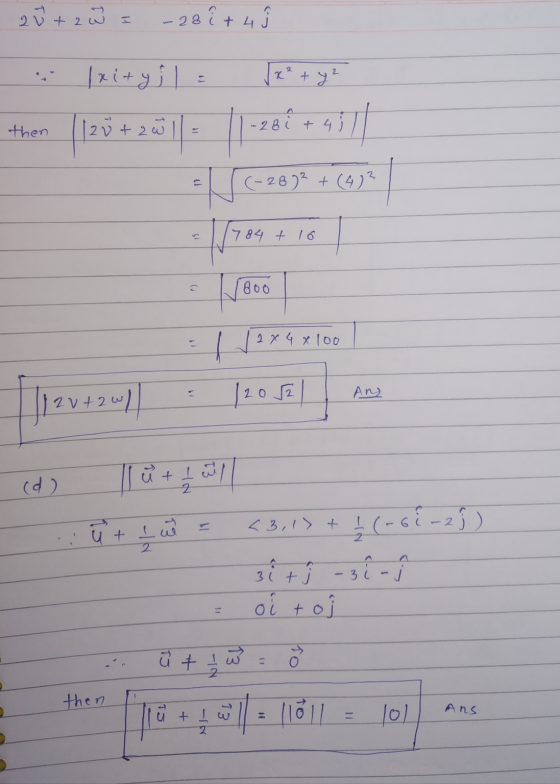 2v⃗ + 2w⃗ = -28î + 4ĵ
∵ |xi + yĵ| = √(x² + y²)
then ||2v⃗ + 2w⃗|| = ||-28î + 4ĵ||
= |√((-28)² + (4)²)|
= |√(784 + 16)|
= |√800|
= |√(2 × 4 × 100)|
||2v + 2w|| = |20√2| Ans
(d) ||u⃗ + 1/2 w⃗||
∵ u⃗ + 1/2 w⃗ = <3, 1> + 1/2 (-6î - 2ĵ)
3î + ĵ - 3î - ĵ
= 0î + 0ĵ
∴ u⃗ + 1/2 w⃗ = 0⃗
then ||u⃗ + 1/2 w⃗|| = ||0⃗|| = |0| Ans